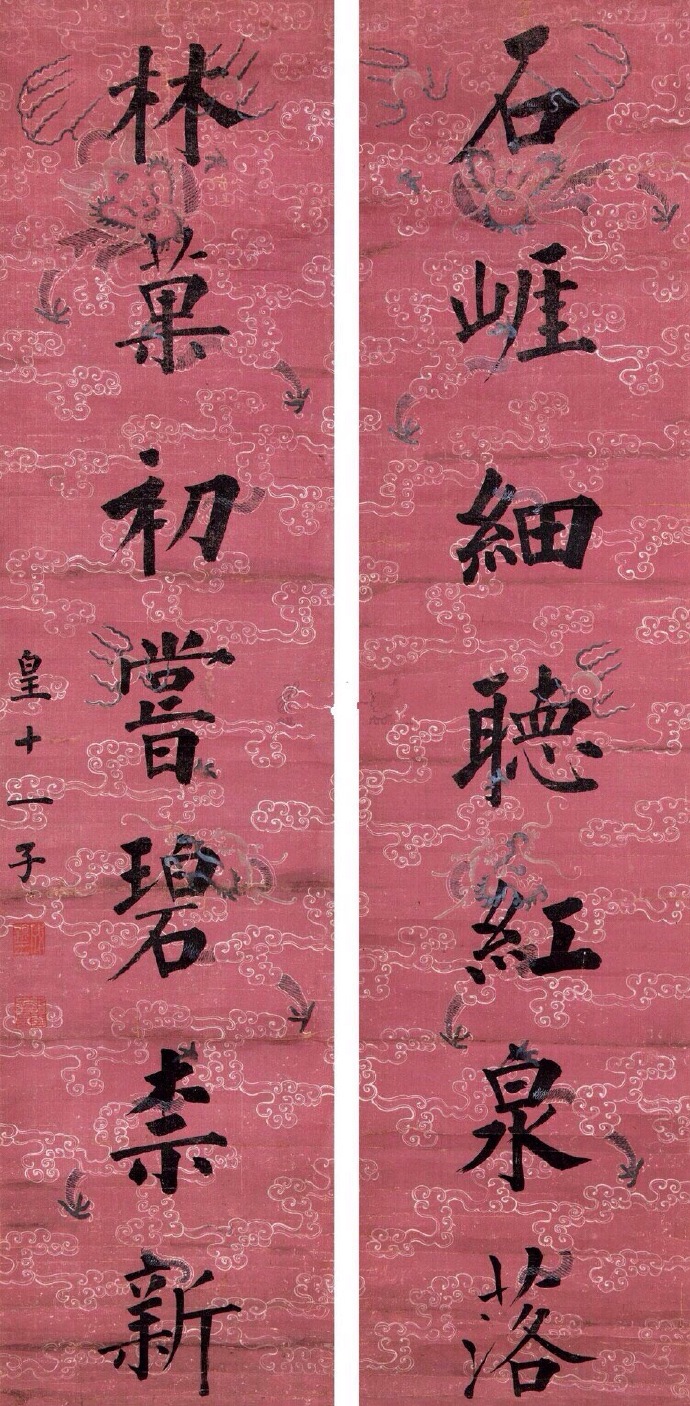 石崕細聽紅泉落
林菓初嘗碧柰新
皇十一子